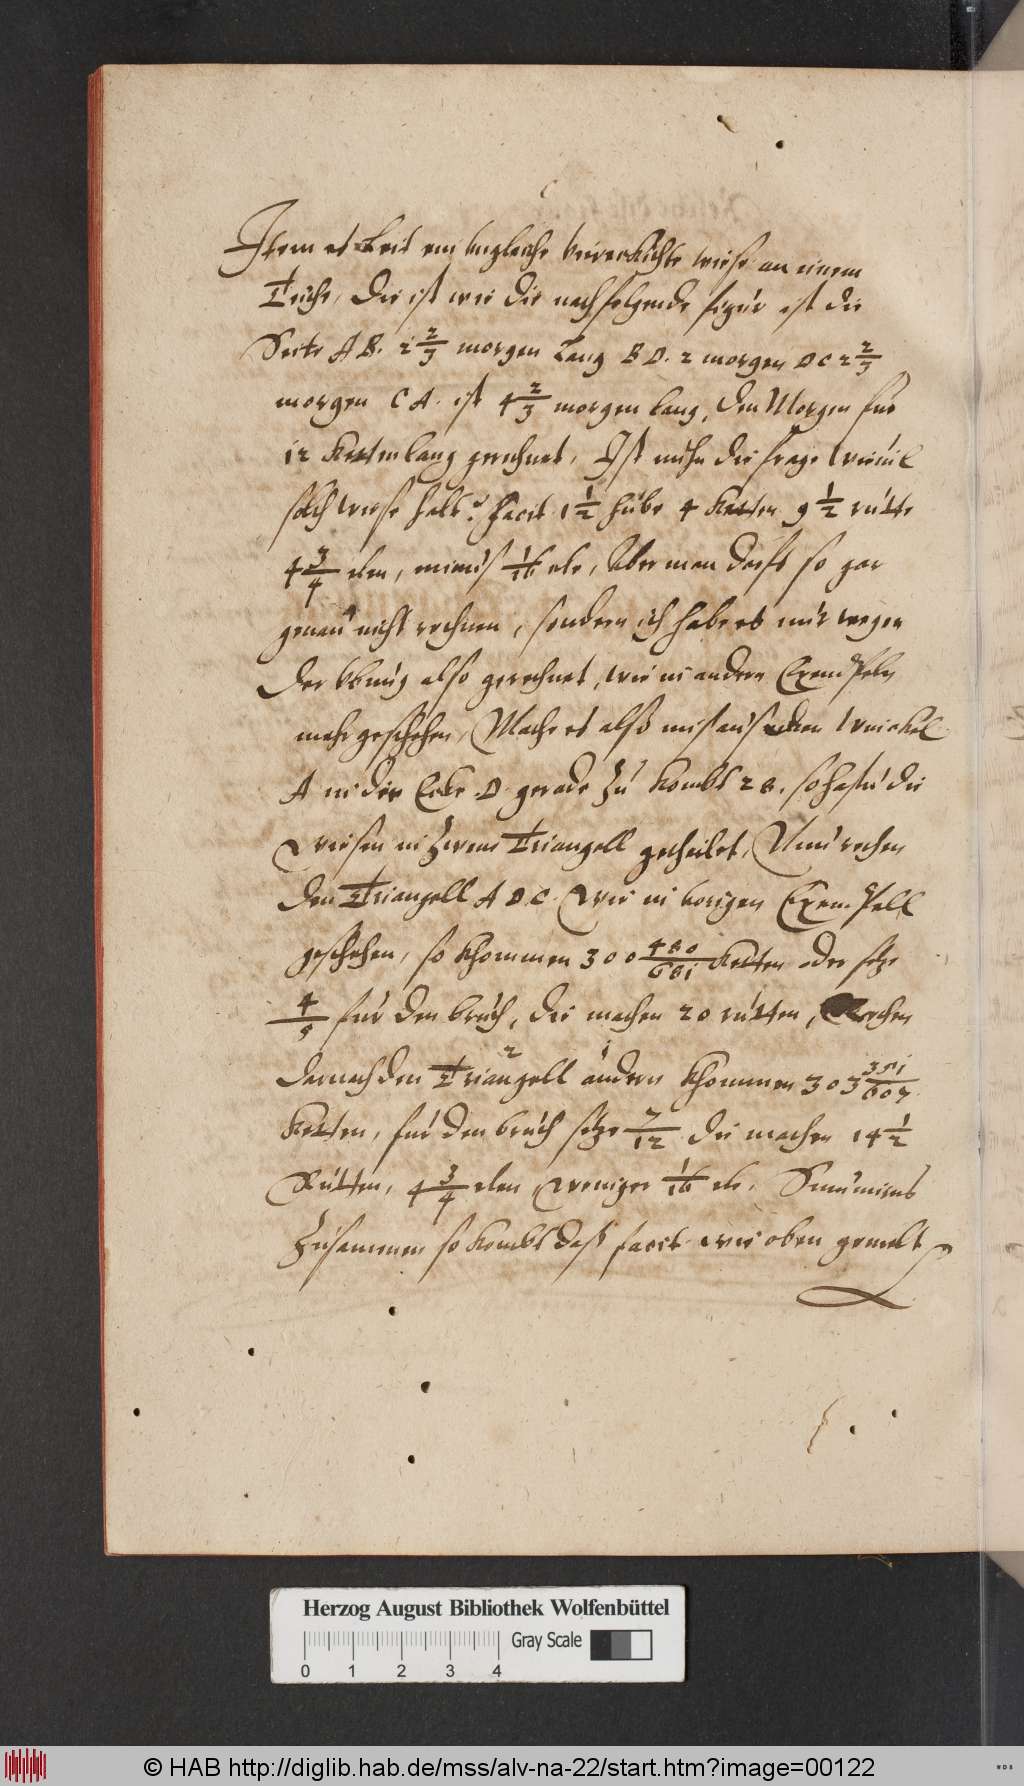 Item es Leit ein ungleiche vierecKichte wiese an einem
Teiche, Die ist wie die nachfolgende figur ist die
Seite A B. 2 2/3 morgen Lang B D. 2 morgen D C 2 2/3
morgen C A. ist 4 2/3 morgen lang, den Morgen fur
12 Ketten lang gerechnet, Ist nuhn die frage wieuil
solch wiese halt? facit 1 1/2 hube 4 Ketten 9 1/2 rutte
4 3/4 elen, minus 1/16 ele, Aber man darf so gar
genau nicht rechnen, sondern ich habe es nur wegen
der ubung also gerechnet, wie in andern Exempeln
mehr geschehen, Mache es also mis aus dem winckel
A in die Ecke D gerade zu Kombt 28. so hastu die
wiesen in zween Triangell getheilet, Nun rechen
den Triangell A D C. wie in vorigen Exempell
geschehen, so khommen 300 480/601 Ketten oder setze
4/5 fur den bruch, die machen 20 rutten, Rechen
darnach den Triangell andern khommen 303 351/607
2 1
Ketten, fur den bruch setze 7/12 die machen 14 1/2
Rutten, 4 3/4 elen weniger 1/16 ele. Summirs
Zusammen so Kombt das facit wie oben gemelt
Herzog August Bibliothek Wolfenbüttel
Gray Scale
0 1 2 3 4
© HAB http://diglib.hab.de/mss/alv-na-22/start.htm?image=00122